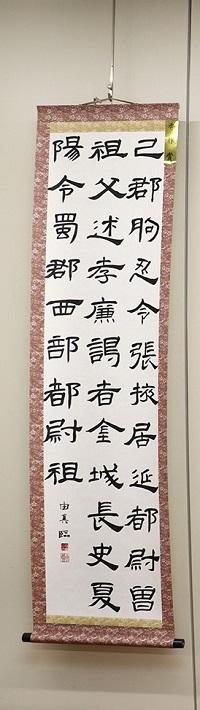 己郡朐忍令張掖居延都尉曽
祖父述孝廉謁者金城長史夏
陽令蜀郡西部都尉祖
由真臨